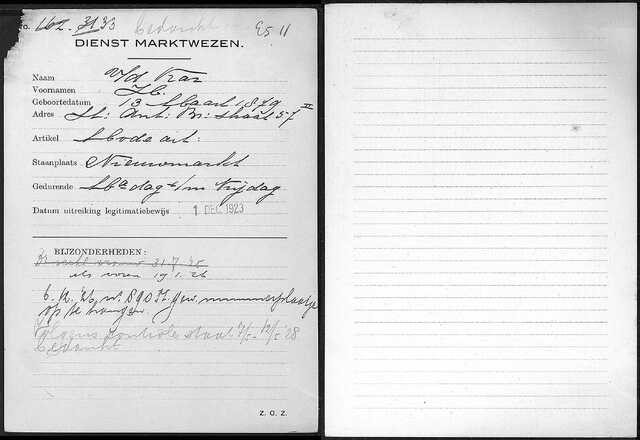 No. 162. 3133 Bedankt E5 11
DIENST MARKTWEZEN.
Naam v/d Kar
Voornamen
Geboortedatum 13 Maart 1879
Adres St: Ant: Br: straat 57 II
Artikel Mode art:
Staanplaats Nieuwmarkt
Gedurende Ma dag t/m Vrijdag
Datum uitreiking legitimatiebewijs 1 DEC. 1923
BIJZONDERHEDEN:
31.7.25
als voren 19.1.26
6.12.'26, w. 890 St. gew. nummerplaatje
op te hangen.
Volgens controle staat 7/5 - 12/5 '28
bedankt
Z. O. Z.